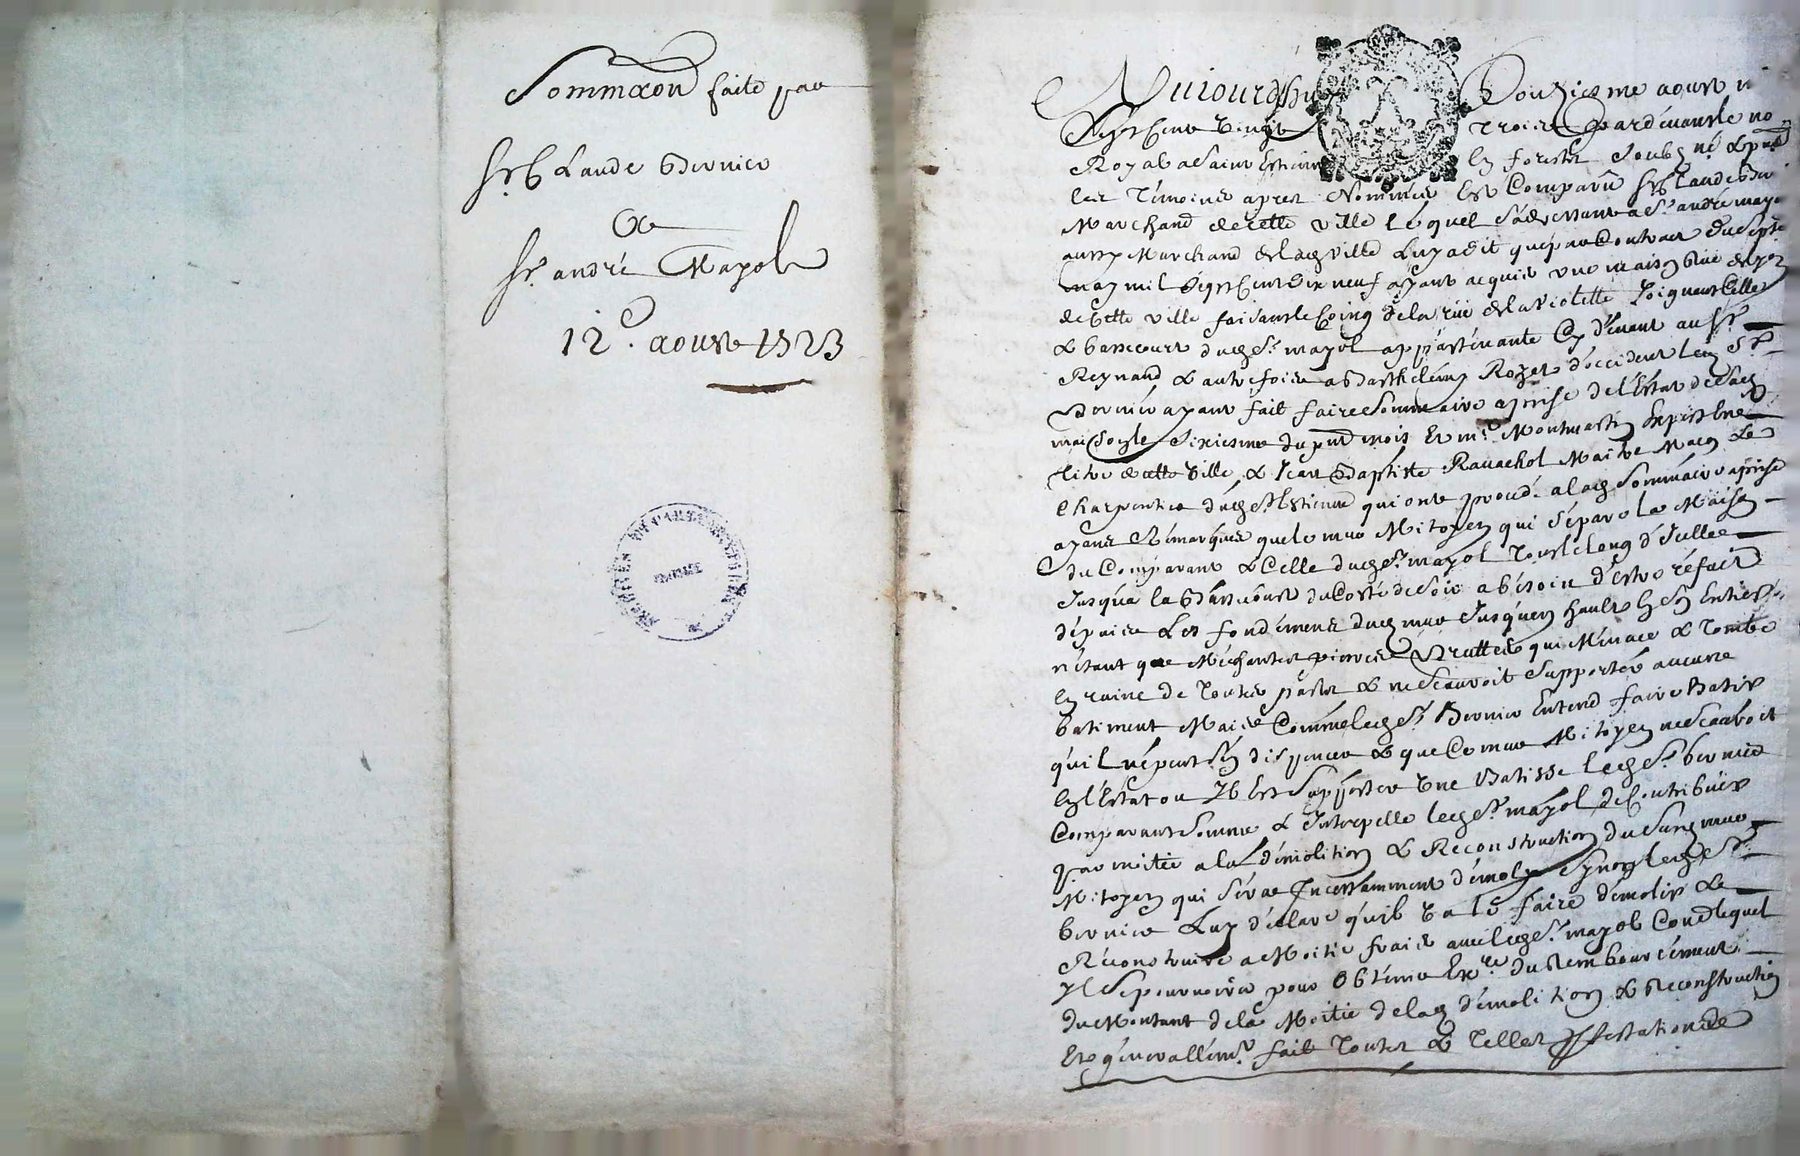 Sommaon faite par
Sr Claude Bernier
A
Sr andré Mayol
12e. aoust 1723
ARCHIVES DEPARTEMENTALES
Aujourdhuy Douziesme aoust
Sept Cent Vingt Trois Pardevant le no
Royal a Saint Estienne En forestz Soubzné & pnt
les Témoins apres Nommés Est Comparû Sr Claude Ber
Marchand de cette ville lequel s'adressant a Sr andré mayo
aussy Marchand de lad ville Luy a dit que par Contract du Sept
may mil Sept Cent Dix neuf ayant acquis une maison Size
de Cette ville faisant le Coing de la rüe de la violette Joignant Celle
& bassecourt dud Sr mayol appartenante Cy devant au Sr
Reynaud & autrefois a Barthelémy Rozet d'occident led Sr
Bernier ayant fait faire Sommaire aprise de l'Estat de Lad
maison le Sixiesme du pnt mois Et mr Montmartin Expert
de cette Ville & Jean Baptiste Ravachol Maitre Maçon &
Charpentier dud St Estienne qui ont procédé a lad Sommaire aprise
ayans Rémarqués que le mur Mitoyen qui Sépare la Maison
du Comparant & Celle dud Sr mayol Tout le long d'Icelle
Jusqua la Bassecourt du Costé de Soir a bésoin d'estre réfait
dépuis Les fondémens dud mur Jusqu'en hault En Son Entier
n'étant que Méchantes pierres Bruttes qui Ménace & Tombe
En ruine de Toutes parts & ne Scauroit Supporter aucune
batiment Mais Commeled Sr Bernier Entend faire Batir
qu'il né peut S'en dispencer & que Ce mur Mitoyen ne Scauroit
En l'Estat ou Il Est Supporter Une Batisse led Sr bernier
Comparant Somme & Interpelle led Sr mayol de Contribüer
par moitié a la démolition & Reconstruction du Susd mur
Mitoyen qui Sérat Incessamment démoly Sinon led Sr
bernier Luy déclare qu'il Va le faire démolir &
Réconstruire a Moitié frais avec led Sr mayol Contre lequel
Il Se pourvoira pour Obtenir Exre du Remboursement
du Montant de la Moitié de lad démolition & Reconstruction
Et généralemt fait Toutes & Telles Protestations de